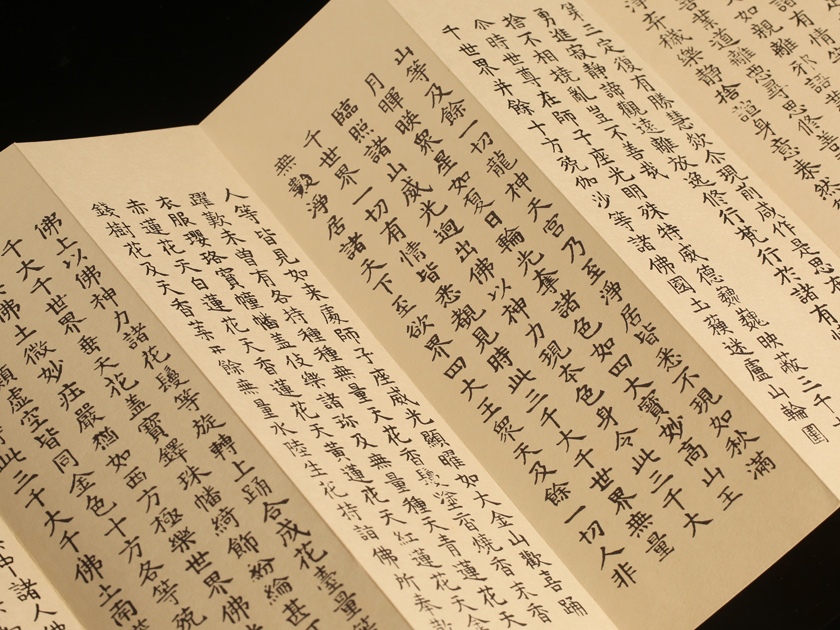 善業道離
淨弃穢樂靜捨諠身意泰然
第三定復有勝慧欻尒現前咸作是思
勇進寂靜諦觀遠離放逸修行梵行於諸有情
捨不相撓亂豈不善哉
尒時世尊在師子座光明殊特威德巍巍映蔽三千
千世界并餘十方殑伽沙等諸佛國土蘇迷盧山輪圍
山等及餘一切龍神天宮乃至淨居皆悉不現如秋滿
月暉暎眾星如夏日輪光奪諸色如四大寶妙高山王
臨照諸山威光迥出佛以神力現本色身令此三千大
千世界一切有情皆悉覩見時此三千大千世界無量
無數淨居諸天下至欲界四大王眾天及餘一切人非
人等皆見如來處師子座威光顯曜如大金山歡喜踊
躍歎未曾有各持種種無量天花香鬘塗香燒香末香
衣服瓔珞寶幢幡蓋伎樂諸珎及無量種天青蓮花天
赤蓮花天白蓮花天香蓮花天黃蓮花天紅蓮花天金
錢樹花及天香葉并餘無量水陸生花持詣佛所奉散
佛上以佛神力諸花鬘等旋轉上踊合成花臺量等
千大千世界垂天花蓋寶鐸珠幡綺飾紛綸甚可
佛土微妙莊嚴猶如西方極樂世界佛
類虛空皆同金色十方各等殑
此三千大千佛土南
諸人